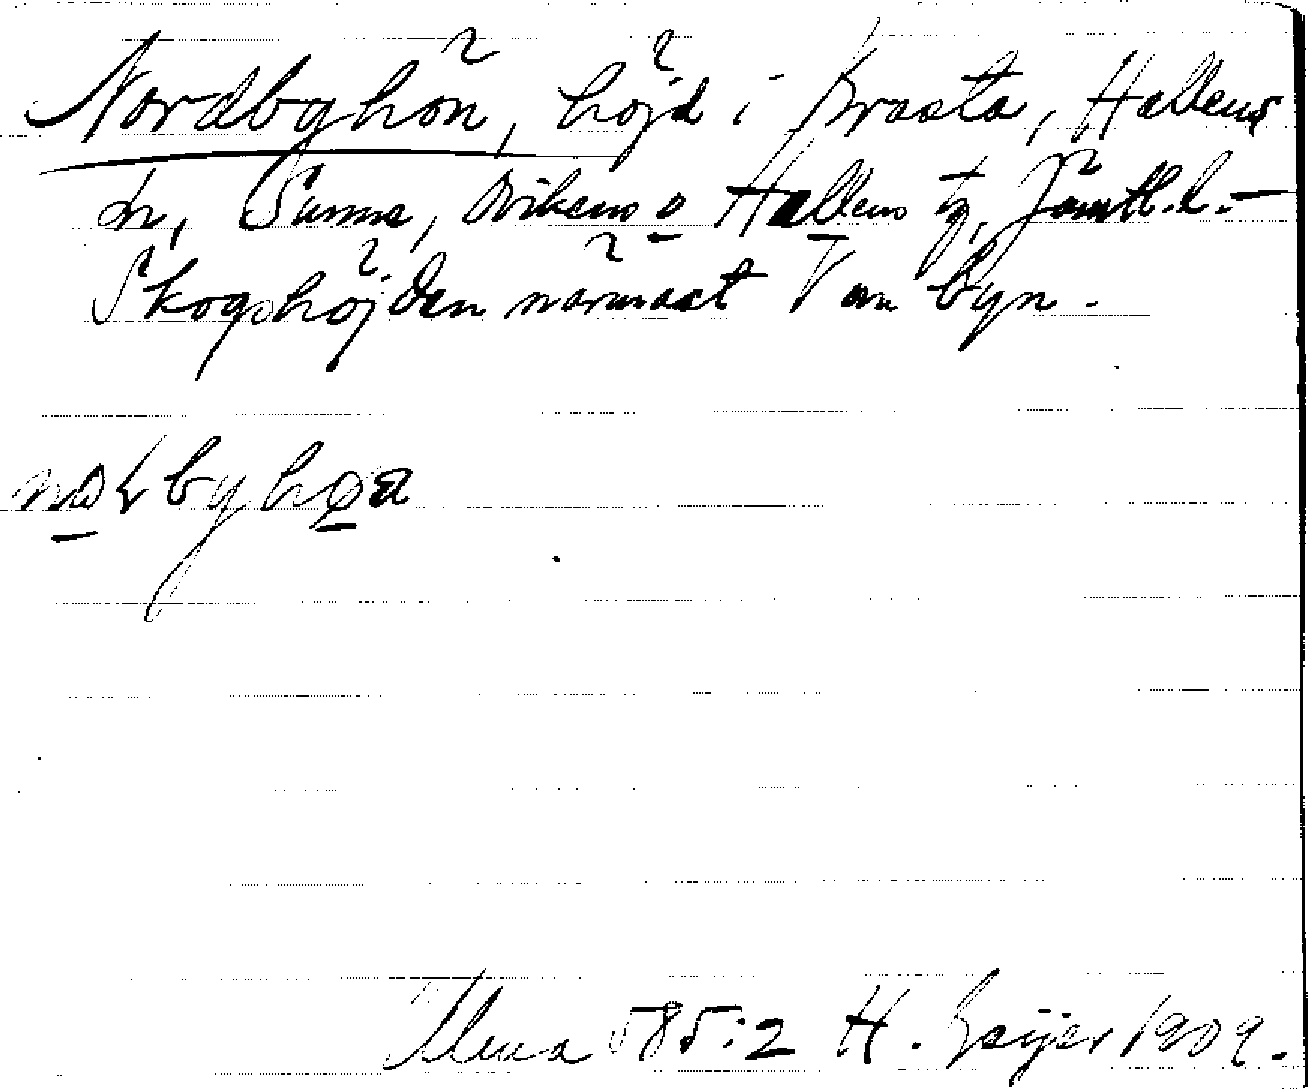 Nordbyhön, höjd i Krasta, Hallens
sn, Sunne, Ovikens o Hallens tg, Jämtl.l. -
Skogshöjden närmast V om byn.
byhøa
Ulma 585:2 H. Geijer 1909.